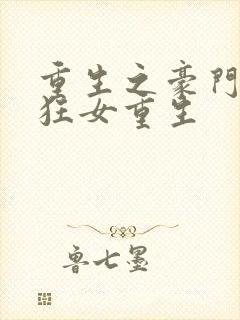 重生之豪門
狂女重生
魯七墨